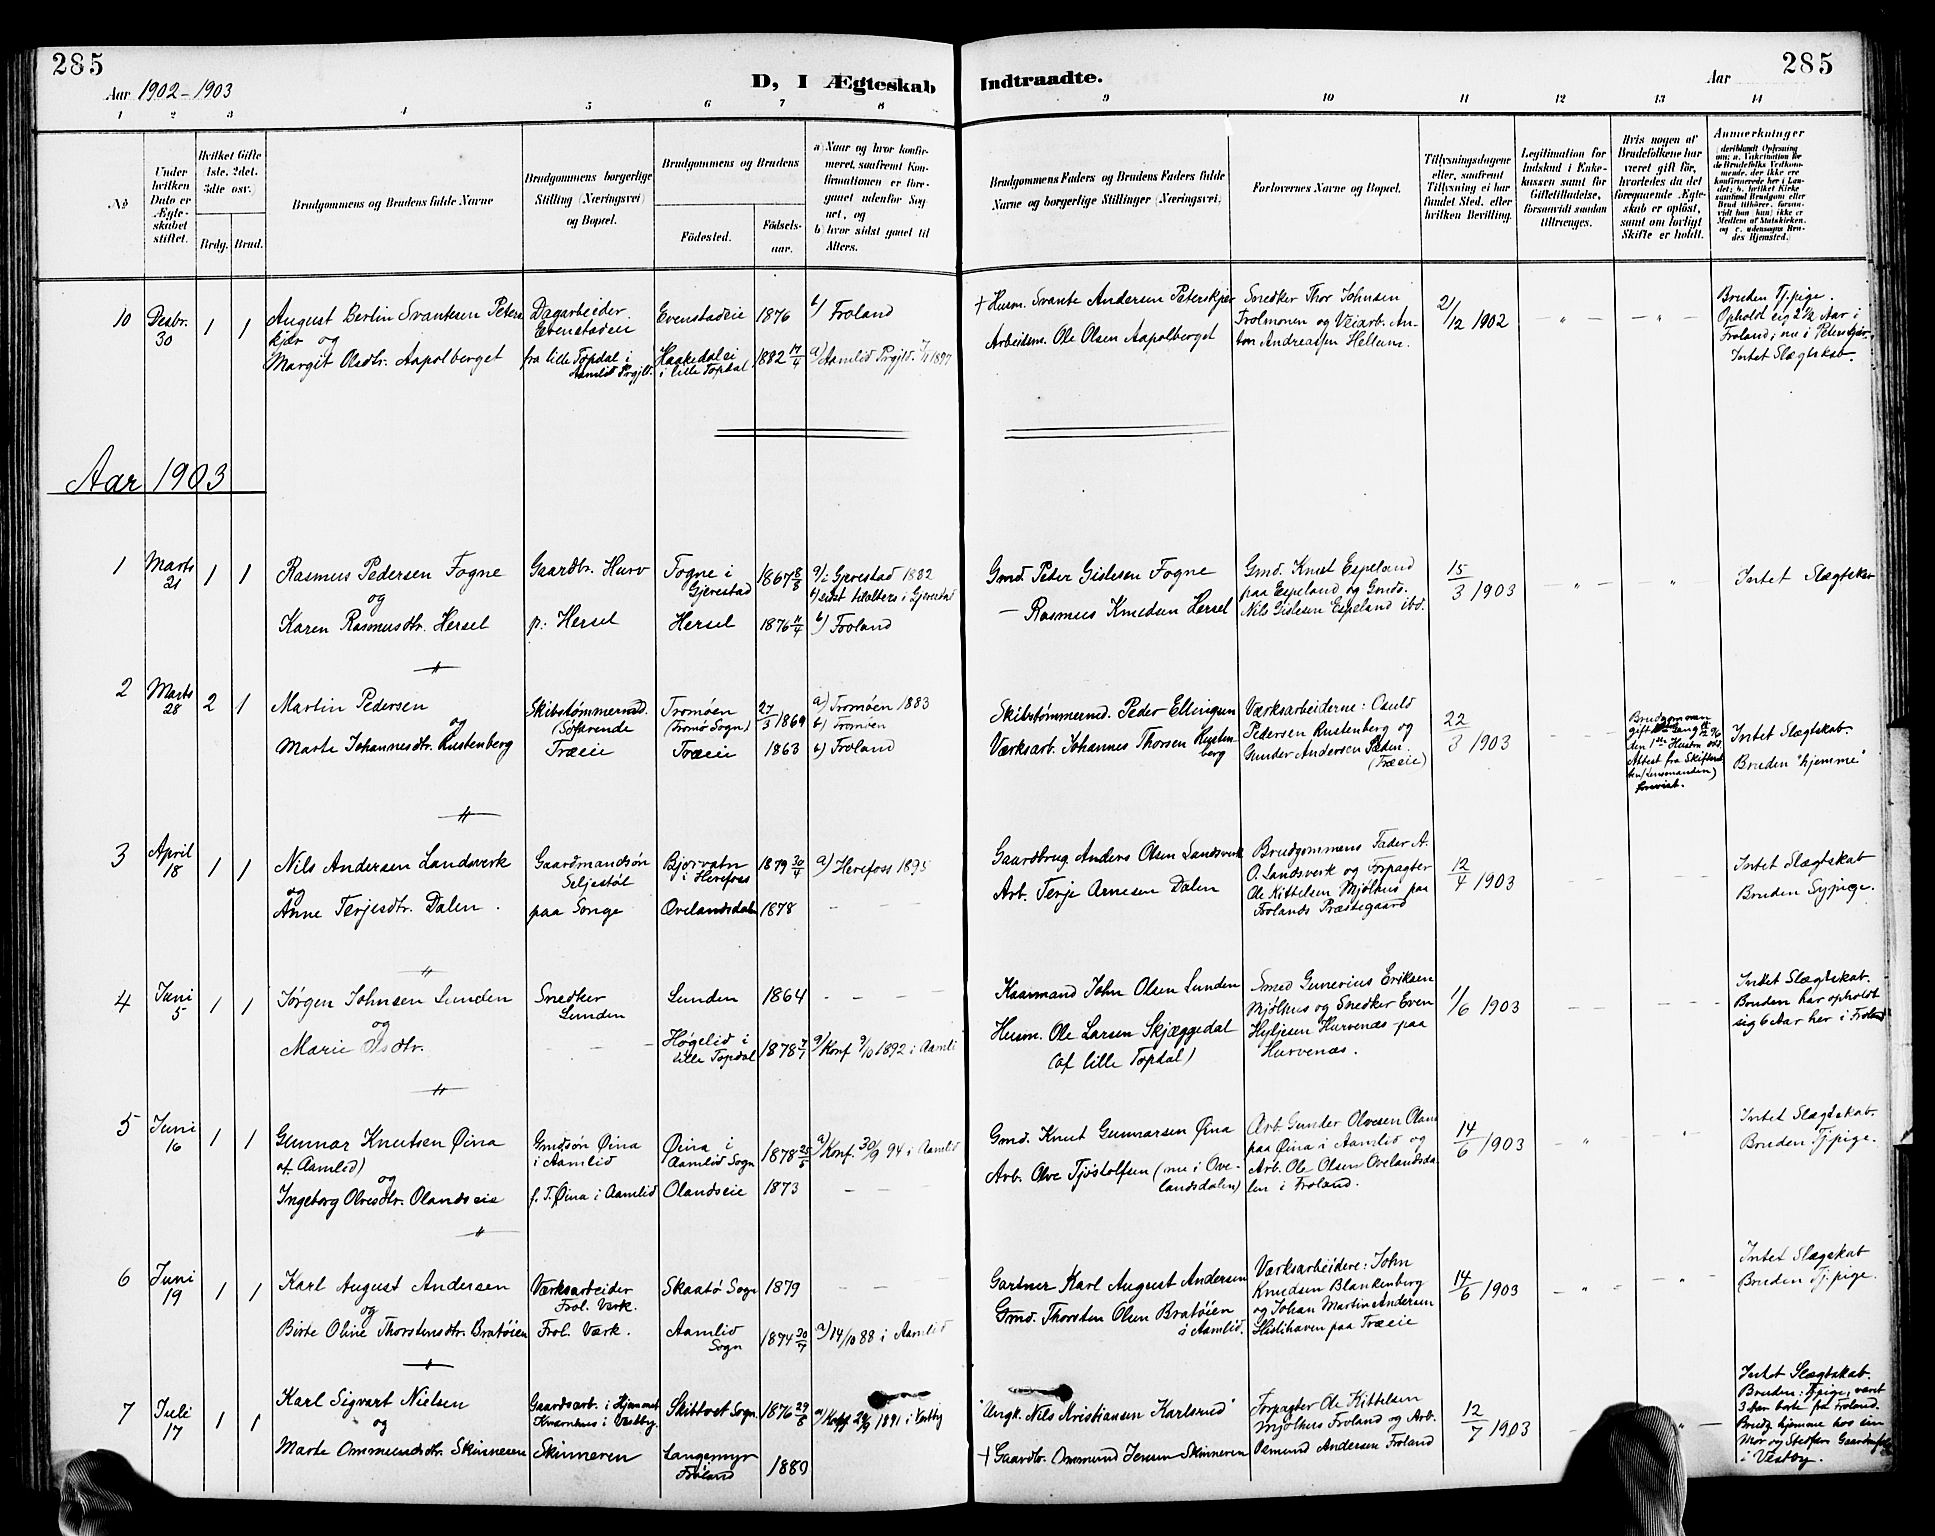 285
Aar 1902-1903
D, I Ægteskab
Indtraadte.
Aar
285
1 2 3 4 5 6 7 8 9 10 11 12 13 14
No
Under hvilken Dato er Ægteskabet stiftet.
Hvilket Gifte 1ste. 2det. 3die osv.)
Brdg. Brud.
Brudgommens og Brudens fulde Navne
Brudgommens borgerlige Stilling (Næringsvei) og Bopæl.
Brudgommens og Brudens
Fødested.
Fødsels-aar.
a) Naar og hvor konfirmeret, saafremt Konfirmationen er foregaaet udenfor Sognet, og
b) hvor sidst gaaet til Alters.
Brudgommens Faders og Brudens Faders fulde Navne og borgerlige Stillinger (Næringsvei)
Forlovernes Navne og Bopæl.
Tillysningsdagene eller, saafremt Tillysning ei har fundet Sted, efter hvilken Bevilling.
Legitimation for Indskud i Enkekassen samt for Giftetilladelse, forsaavidt saadan tiltrænges.
Hvis nogen af Brudefolkene har været gift før, hvorledes da det foregaaende Ægteskab er opløst, samt om lovligt Skifte er holdt.
Anmerkninger
10 Desbr. 30 1 1
August Berlin Svantesen Peterskjær og
Margit Olsdtr. Aapolberget
Dagarbeider Evenstadeie
fra lille Topdal i Aamlid Prgjld.
Evenstadeie 1876 b) Froland
Haakedal ei i lille Topdal 1882 17/4 a) Aamlid Prgjld. 1897
† Husm. Svante Andersen Peterskjer
Arbeidsm. Ole Olsen Aapolberget
Snedker Thor Johnsen
Frolmonen og Veiarb. Anton Andreassen Hellum.
21/12 1902
Bruden Tj.pige.
Opholdt sig 2 1/2 Aar i
Froland; nu i Peterskjær.
Intet Slægtskab.
Aar 1903
1 Marts 21 1 1
Rasmus Pedersen Fogne
og
Karen Rasmusdtr. Hersel
Gaardbr. Hurv
p: Hersel
Fogne i Gjerestad 1867 8/8
a) i Gjerestad 1882
b) sidst til alters i Gjerestad
Hersel 1876 11/4 b) Froland
Gmd. Peder Gislesen Fogne
— Rasmus Knudsen Hersel
Gmd. Knut Espeland
paa Espeland og Gmds.
Nils Gislesen Espeland ibd.
15/3 1903
Intet Slægtskab
2 Marts 28 2 1
Martin Pedersen
og
Marte Johannesdtr. Rustenberg
Skibstømmermd. (Søfarende
Træeie
Tromøen (Tromø Sogn) 27/3 1869
a) Tromøen 1883
b) Tromøen
Træeie 1863 b) Froland
Skibstømmermd. Peder Ellingsen
Værksarb. Johannes Thorsen Rustenberg
Værksarbeiderne: Osuld
Pedersen Rustenberg og
Gunder Andersen Pæden
(Træeie)
22/3 1903
Brudgom var gift
den 1ste Hustru død.
Attest fra Skifteretten (Lensmanden)
forevist.
Intet Slægtskab.
Bruden "hjemme"
3 April 18 1 1
Nils Andersen Landsverk
og
Anne Terjesdtr. Dalen.
Gaardmandsøn Seljestøl
paa Songe
Bjorvatn i Herefoss 1879 30/4 a) Herefoss 1895
Ovelandsdal 1878
Gaardbrug Anders Olsen Landsverk
Arb. Terje Arnesen Dalen
Brudgommens Fader A.
O. Landsverk og Forpagter
Ole Kittelsen Mjølhus paa
Frolands Præstegaard
12/4 1903
Intet Slægtskab
Bruden Sypige.
4 Juni 5 1 1
Jørgen Johnsen Lunden
og
Marie Olsdtr.
Snedker Lunden
Lunden 1864
Høgelid i lille Topdal 1878 7/1 a) Konf 9/10 1892 i Aamli
Kaarmand John Olsen Lunden
Husm. Ole Larsen Skjæggedal
(af lille Topdal)
Smed Gunerius Eriksen
Mjølhus og Snedker Even
Hyljesen Hurvenæs paa
Hurvenæs.
1/6 1903
Intet Slægtskab.
Bruden har opholdt
sig 6 Aar her i Froland
5 Juni 16 1 1
Gunnar Knutsen Øina
af Aamlid)
og
Ingeborg Olvesdtr. Olandseie
Gmdsøn Øina i Aamlid
f. T. Øina i Aamlid
Øina i Aamlid Sogn 1878 25/5 a) Konf. 30/9 94 i Aamlid
Olandseie 1873
Gmd. Knut Gunnarsen Øina
Arb. Olve Tjøstolfsen (nu i Ovelandsdalen)
Arb Gunder Olvesen Oland
paa Øina i Aamlid og
Arb. Ole Olsen Ovelandsdalen i Froland.
14/6 1903
Intet Slægtskab.
Bruden Tj.pige.
6 Juni 19 1 1
Karl August Andersen
og
Birte Oline Thorstensdtr. Bratøien
Værksarbeider Frol. Værk.
Frol. Værk.
Skaatø Sogn 1879
Aamlid Sogn 1874 20/7 a) 14/10 88 i Aamlid
Gartner Karl August Andersen
Gmd. Thorsten Olsen Bratøien
i Aamlid.
Værksarbeidere: John
Knudsen Blankenberg
og Johan Martin Andersen
Slistihaven paa Træeie
14/6 1903
Intet Slægtskab
Bruden Tj.pige.
7 Juli 17 1 1
Karl Sigvart Nielsen
og
Marte Ommundsdtr. Skinneren
Gaardsarb. i Hjemmet Kvarnhus i Vestby.
Skinneren
Skittvet Sogn. 1876 29/8 a) Konf 1891 i Vestby
Langemyr Froland 1880
"Ungk. Nils Kristiansen Karlsrud"
† Gaardbr. Ommund Jensen Skinneren
Forpagter Ole Kittelsen
Mjølhus Froland og Arb.
Osmund Andersen Froland
12/7 1903
Intet Slægtskab.
Bruden: Tj.pige, været
3 Aar borte fra Froland.
Brudg hjemme hos sin
Mor og Stedfar
i Vestby.